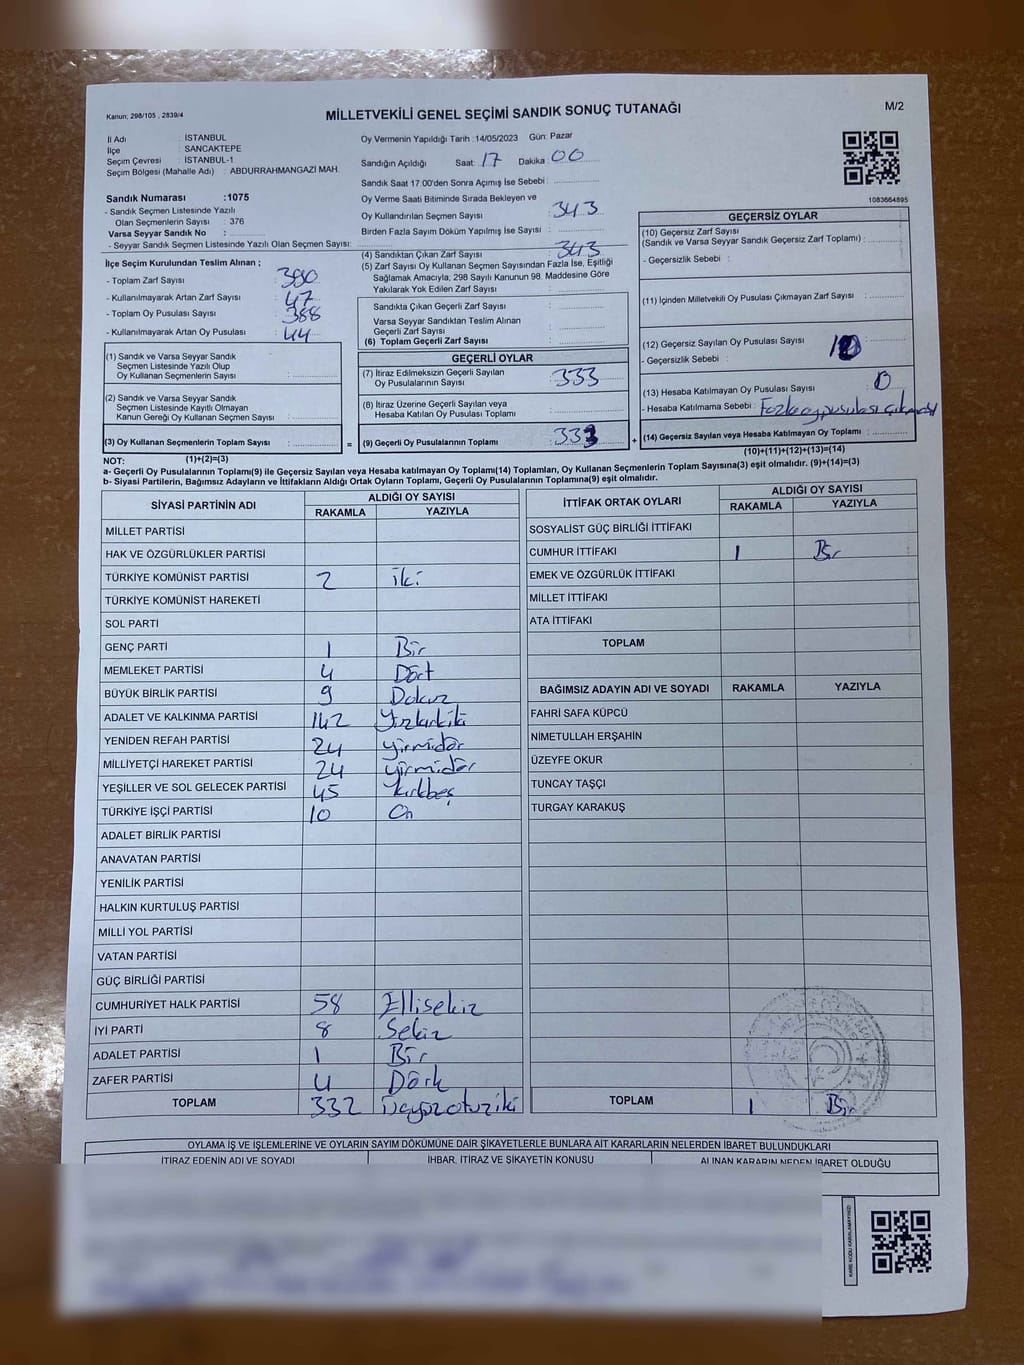 Kanun; 298/105 , 2839/4
MİLLETVEKİLİ GENEL SEÇİMİ SANDIK SONUÇ TUTANAĞI
M/2
İl Adı : İSTANBUL
İlçe : SANCAKTEPE
Seçim Çevresi : İSTANBUL-1
Seçim Bölgesi (Mahalle Adı) : ABDURRAHMANGAZİ MAH.
Sandık Numarası :1075
- Sandık Seçmen Listesinde Yazılı
Olan Seçmenlerin Sayısı : 376
Varsa Seyyar Sandık No :
- Seyyar Sandık Seçmen Listesinde Yazılı Olan Seçmen Sayısı:
Oy Vermenin Yapıldığı Tarih :14/05/2023 Gün: Pazar
Sandığın Açıldığı Saat: 17 Dakika 00
Sandık Saat 17.00'den Sonra Açımış İse Sebebi :
Oy Verme Saati Bitiminde Sırada Bekleyen ve
Oy Kullandırılan Seçmen Sayısı : 343
Birden Fazla Sayım Döküm Yapılmış İse Sayısı :
1083664895
İlçe Seçim Kurulundan Teslim Alınan ;
- Toplam Zarf Sayısı : 380
- Kullanılmayarak Artan Zarf Sayısı : 47
- Toplam Oy Pusulası Sayısı : 388
- Kullanılmayarak Artan Oy Pusulası : 44
(1) Sandık ve Varsa Seyyar Sandık
Seçmen Listesinde Yazılı Olup
Oy Kullanan Seçmenlerin Sayısı :
(2) Sandık ve Varsa Seyyar Sandık
Seçmen Listesinde Kayıtlı Olmayan
Kanun Gereği Oy Kullanan Seçmen Sayısı :
(3) Oy Kullanan Seçmenlerin Toplam Sayısı :
(1)+(2)=(3)
(4) Sandıktan Çıkan Zarf Sayısı : 343
(5) Zarf Sayısı Oy Kullanan Seçmen Sayısından Fazla İse, Eşitliği
Sağlamak Amacıyla, 298 Sayılı Kanunun 98. Maddesine Göre
Yakılarak Yok Edilen Zarf Sayısı :
Sandıkta Çıkan Geçerli Zarf Sayısı :
Varsa Seyyar Sandıktan Teslim Alınan
Geçerli Zarf Sayısı :
(6) Toplam Geçerli Zarf Sayısı :
GEÇERLİ OYLAR
(7) İtiraz Edilmeksizin Geçerli Sayılan
Oy Pusulalarının Sayısı : 333
(8) İtiraz Üzerine Geçerli Sayılan veya
Hesaba Katılan Oy Pusulası Toplamı :
= (9) Geçerli Oy Pusulalarının Toplamı : 333 +
GEÇERSİZ OYLAR
(10) Geçersiz Zarf Sayısı
(Sandık ve Varsa Seyyar Sandık Geçersiz Zarf Toplamı) :
- Geçersizlik Sebebi :
(11) İçinden Milletvekili Oy Pusulası Çıkmayan Zarf Sayısı :
(12) Geçersiz Sayılan Oy Pusulası Sayısı :
- Geçersizlik Sebebi :
(13) Hesaba Katılmayan Oy Pusulası Sayısı : 0
- Hesaba Katılmama Sebebi : Fazla oy pusulası çıkmadı
(14) Geçersiz Sayılan veya Hesaba Katılmayan Oy Toplamı :
(10)+(11)+(12)+(13)=(14)
NOT:
a- Geçerli Oy Pusulalarının Toplamı(9) ile Geçersiz Sayılan veya Hesaba katılmayan Oy Toplamı(14) Toplamları, Oy Kullanan Seçmenlerin Toplam Sayısına(3) eşit olmalıdır. (9)+(14)=(3)
b- Siyasi Partilerin, Bağımsız Adayların ve İttifakların Aldığı Ortak Oyların Toplamı, Geçerli Oy Pusulalarının Toplamına(9) eşit olmalıdır.
SİYASİ PARTİNİN ADI ALDIĞI OY SAYISI
RAKAMLA YAZIYLA
MİLLET PARTİSİ
HAK VE ÖZGÜRLÜKLER PARTİSİ
TÜRKİYE KOMÜNİST PARTİSİ 2 iki
TÜRKİYE KOMÜNİST HAREKETİ
SOL PARTİ
GENÇ PARTİ 1 Bir
MEMLEKET PARTİSİ 4 Dört
BÜYÜK BİRLİK PARTİSİ 9 Dokuz
ADALET VE KALKINMA PARTİSİ 142 Yüzkırkiki
YENİDEN REFAH PARTİSİ 24 yirmidör
MİLLİYETÇİ HAREKET PARTİSİ 24 yirmidör
YEŞİLLER VE SOL GELECEK PARTİSİ 45 Kırkbeş
TÜRKİYE İŞÇİ PARTİSİ 10 On
ADALET BİRLİK PARTİSİ
ANAVATAN PARTİSİ
YENİLİK PARTİSİ
HALKIN KURTULUŞ PARTİSİ
MİLLİ YOL PARTİSİ
VATAN PARTİSİ
GÜÇ BİRLİĞİ PARTİSİ
CUMHURİYET HALK PARTİSİ 58 Ellisekiz
İYİ PARTİ 8 Sekiz
ADALET PARTİSİ 1 Bir
ZAFER PARTİSİ 4 Dört
TOPLAM 332 üçyüzotuziki
İTTİFAK ORTAK OYLARI ALDIĞI OY SAYISI
RAKAMLA YAZIYLA
SOSYALİST GÜÇ BİRLİĞİ İTTİFAKI
CUMHUR İTTİFAKI 1 Bir
EMEK VE ÖZGÜRLÜK İTTİFAKI
MİLLET İTTİFAKI
ATA İTTİFAKI
TOPLAM
BAĞIMSIZ ADAYIN ADI VE SOYADI RAKAMLA YAZIYLA
FAHRİ SAFA KÜPCÜ
NİMETULLAH ERŞAHİN
ÜZEYFE OKUR
TUNCAY TAŞÇI
TURGAY KARAKUŞ
TOPLAM 1 Bir
OYLAMA İŞ VE İŞLEMLERİNE VE OYLARIN SAYIM DÖKÜMÜNE DAİR ŞİKAYETLERLE BUNLARA AİT KARARLARIN NELERDEN İBARET BULUNDUKLARI
İTİRAZ EDENİN ADI VE SOYADI İHBAR, İTİRAZ VE ŞİKAYETİN KONUSU ALINAN KARARIN NEDEN İBARET OLDUĞU
KARE KODU KARALAMAYINIZ!